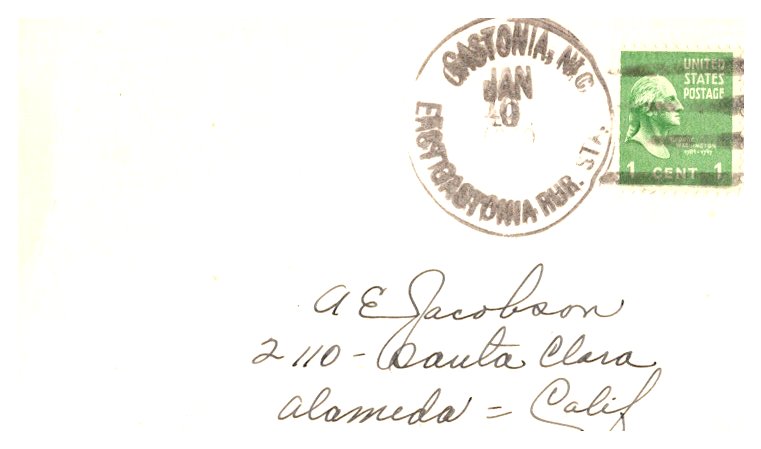 GASTONIA, N.C.
JAN
10
GASTONIA RUR. STA.
UNITED
STATES
POSTAGE
WASHINGTON
1 CENT 1
A E Jacobson
2110 - Santa Clara
Alameda = Calif